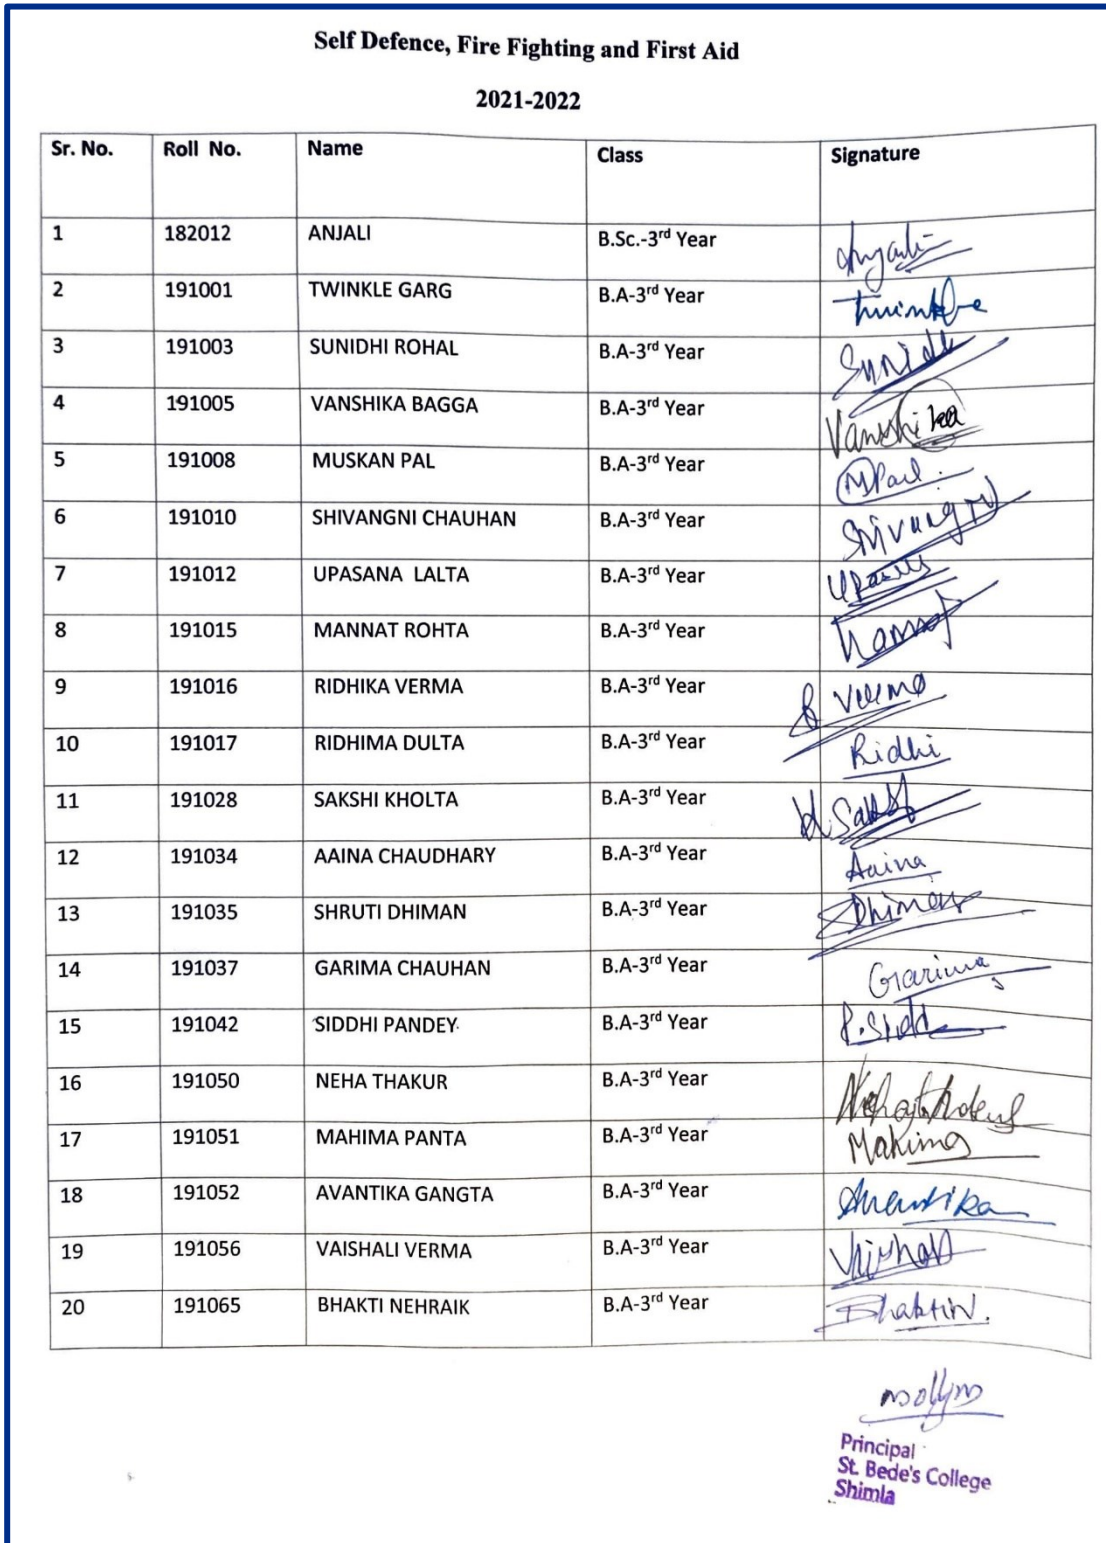 Self Defence, Fire Fighting and First Aid
2021-2022
Sr. No. Roll No. Name Class Signature
1 182012 ANJALI B.Sc.-3rd Year Anjali
2 191001 TWINKLE GARG B.A-3rd Year Twinkle
3 191003 SUNIDHI ROHAL B.A-3rd Year Sunidhi
4 191005 VANSHIKA BAGGA B.A-3rd Year Vanshika
5 191008 MUSKAN PAL B.A-3rd Year MPal
6 191010 SHIVANGNI CHAUHAN B.A-3rd Year
7 191012 UPASANA LALTA B.A-3rd Year
8 191015 MANNAT ROHTA B.A-3rd Year
9 191016 RIDHIKA VERMA B.A-3rd Year R Verma
10 191017 RIDHIMA DULTA B.A-3rd Year Ridhi
11 191028 SAKSHI KHOLTA B.A-3rd Year
12 191034 AAINA CHAUDHARY B.A-3rd Year Aaina
13 191035 SHRUTI DHIMAN B.A-3rd Year SDhiman
14 191037 GARIMA CHAUHAN B.A-3rd Year Garima
15 191042 SIDDHI PANDEY B.A-3rd Year
16 191050 NEHA THAKUR B.A-3rd Year
17 191051 MAHIMA PANTA B.A-3rd Year Mahima
18 191052 AVANTIKA GANGTA B.A-3rd Year Avantika
19 191056 VAISHALI VERMA B.A-3rd Year
20 191065 BHAKTI NEHRAIK B.A-3rd Year BhaktiN.
Principal
St. Bede's College
Shimla